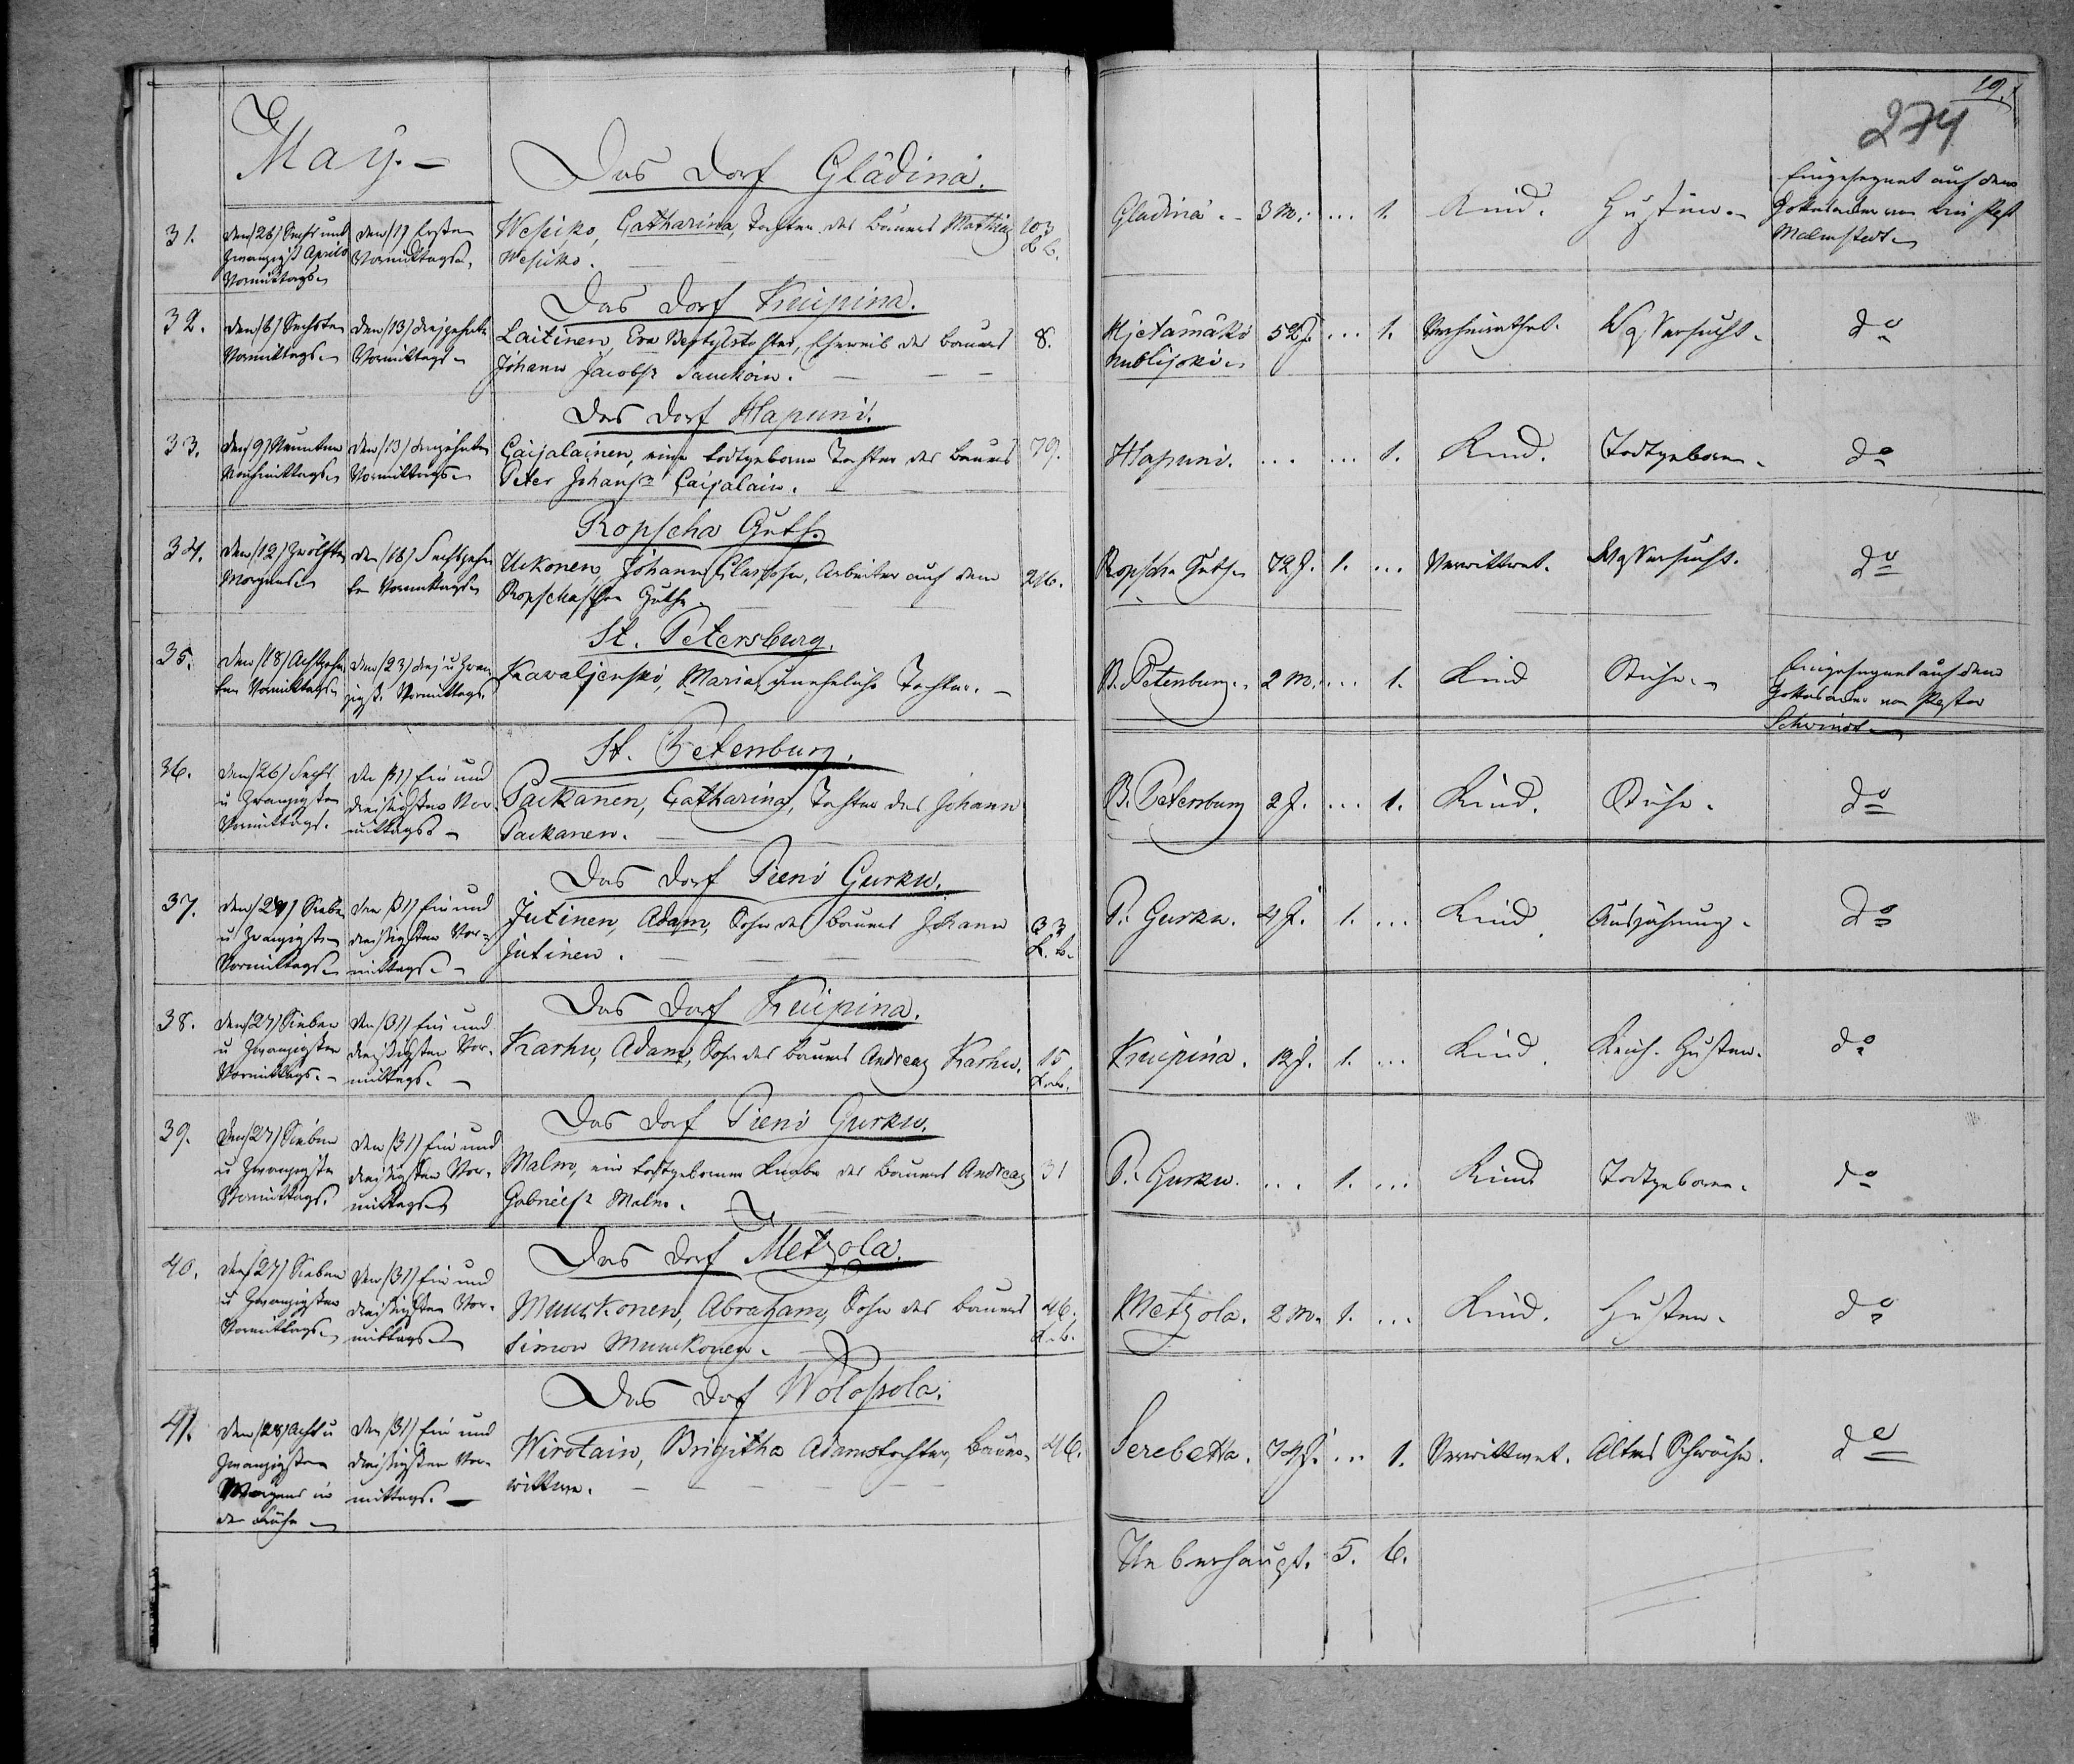 May. –
Das Dorf Glädina.
31.
den /26/ Sechs und
zwanzigst Aprils
Vormittags.
den /1/ Ersten
Vormittags.
Wesiko, Catharina, Tochter des Bauers Mathias
Wesiko.
103
Das Dorf Knipina.
32.
den /6/ Sechsten
Vormittags.
den /13/ dreizehnten
Vormittags.
Laitinen, Eva Bertilstochter, Eheweib des Bauers
Johann Jacobss
8.
Das Dorf Hapuni.
33.
den /9/ Neunten
Nachmittags.
den /13/ dreizehnten
Vormittags.
Caijalainen, eine todtgeborne Tochter des Bauers
Peter Johanss Caijalain.
79.
Ropscha Guth.
34.
den /12/ zwölften
Morgens.
den /16/ Sechszehn
ten Vormittags.
Uckonen, Johann Classohn, Arbeiter auf dem
Ropschaschen Guthe
216.
St. Petersburg.
35.
den /18/ Achtzehn
ten Vormittags.
den /23/ drei u zwan
zigst. Vormittags.
Kavaljenski, Maria, uneheliche Tochter. –
St. Petersburg.
36.
den /26/ Sechs
u zwanzigsten
Vormittags.
den /31/ Ein und
dreisigsten Vor-
mittags. –
Paikanen, Catharina, Tochter des Johann
Paikanen.
Das Dorf Pieni Gurku.
37.
den /27/ Sieben
u zwanzigsten
Vormittags.
den /31/ Ein und
dreisigsten Vor-
mittags. –
Jutinen, Adam, Sohn des Bauers Johann
Jutinen.
33
Das Dorf Knipina.
38.
den /27/ Sieben
u zwanzigsten
Vormittags. –
den /31/ Ein und
dreisigsten Vor-
mittags. –
Karhu, Adam, Sohn des Bauers Andreas Karhu.
15
Das Dorf Pieni Gurku.
39.
den /27/ Sieben
u zwanzigsten
Vormittags.
den /31/ Ein und
dreisigsten Vor-
mittags
Malm, ein todtgeborner Knabe des Bauers Andreas
Gabrielss Malm.
31
Das Dorf Metzola.
40.
den /27/ Sieben
u zwanzigsten
Vormittags.
den /31/ Ein und
dreisigsten Vor-
mittags
Muuckonen, Abraham, Sohn des Bauers
Simon Muuckonen.
46.
Das Dorf Woloßola.
41.
den /28/ Acht u
zwanzigsten
Morgens in
der Frühe
den /31/ Ein und
dreisigsten Vor-
mittags. –
Wirolain, Brigitha Adamstochter, Bauers-
wittwe.
46.
19.
274
Gladina. – 3 M. ... 1. Kind. Husten. –
Eingesegnet auf dem
Gottesacker von
Malmstedt.
5 2 J. ... 1. Verheirathet. Wassersucht. do
Hapuni. ... ... 1. Kind. Todtgeboren. do
Ropscha Guth. 72 J. 1. ... Verwittwet. Wassersucht. do
St. Petersburg. 2 M. ... 1. Kind Ruhr. –
Eingesegnet auf dem
Gottesacker von Pastor
Schwindt
St. Petersburg 2 J. ... 1. Kind. Ruhr. do
P. Gurku. 4 J. 1. ... Kind. Auszehrung. do
Knipina. 12 J. 1. ... Kind. Keich-Husten. do
P. Gurku. ... 1. ... Kind Todtgeboren. do
Metzola. 2 M. 1. ... Kind. Husten. do
Serebetta. 74 J. ... 1. Verwittwet. Alters Schwäche. do
Ueberhaupt. 5. 6.